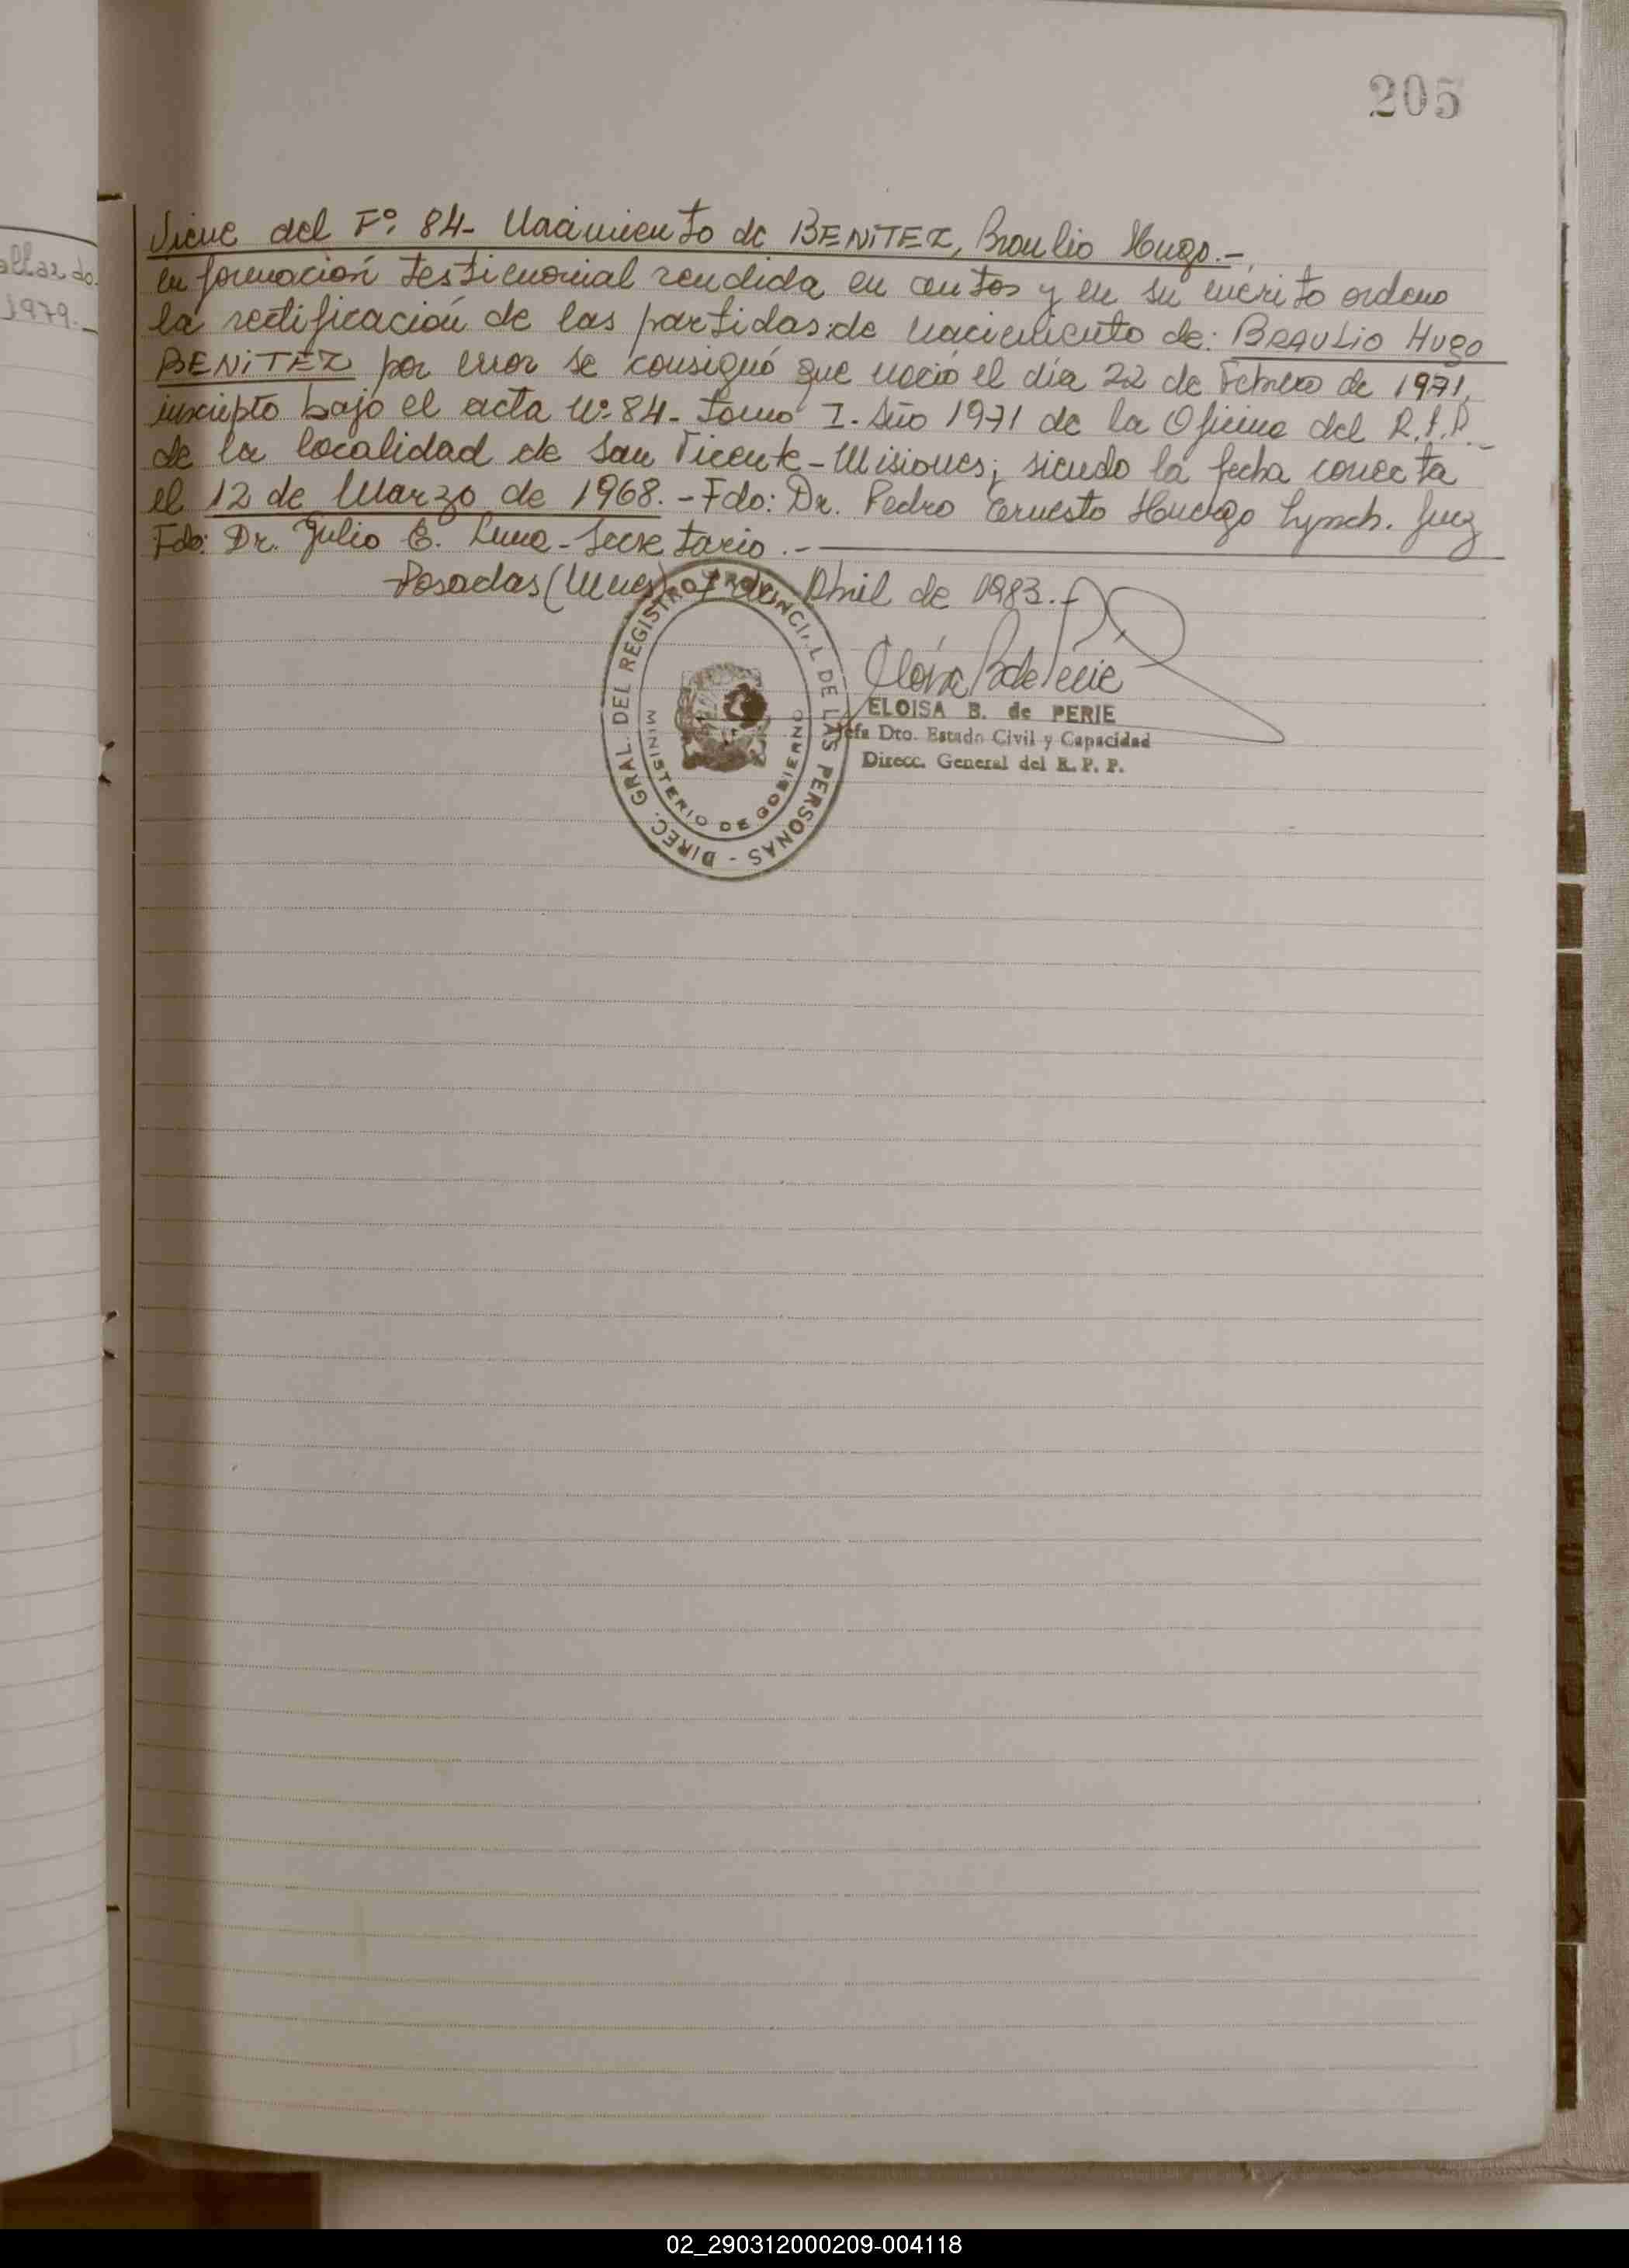 205
allardo.
1979.
Viene del Fº: 84- Nacimiento de BENiTEZ, Braulio Hugo.-
información testimonial rendida en autos y en su mérito ordeno
la rectificación de las partidas: de nacimiento de: BRAULiO HUGO
BENiTEZ por error se consignó que nació el día 22 de Febrero de 1971,
inscripto bajo el acta Nº: 84- Tomo I. Año 1971 de la Oficina del R.P.P.
de la localidad de San Vicente-Misiones; siendo la fecha correcta
el 12 de Marzo de 1968.-Fdo: Dr. Pedro Ernesto Huergo Lynch. Juez
Fdo: Dr. Julio E. Luna-Secretario.-
Posadas (Mnes) de Abril de 1983.-
DIREC. GRAL. DEL REGISTRO PROVINCI L DE LAS PERSONAS -
MINISTERIO DE GOBIERNO
ELOISA B. de PERIE
Jefa Dto. Estado Civil y Capacidad
Direcc. General del R. P. P.
02_290312000209-004118